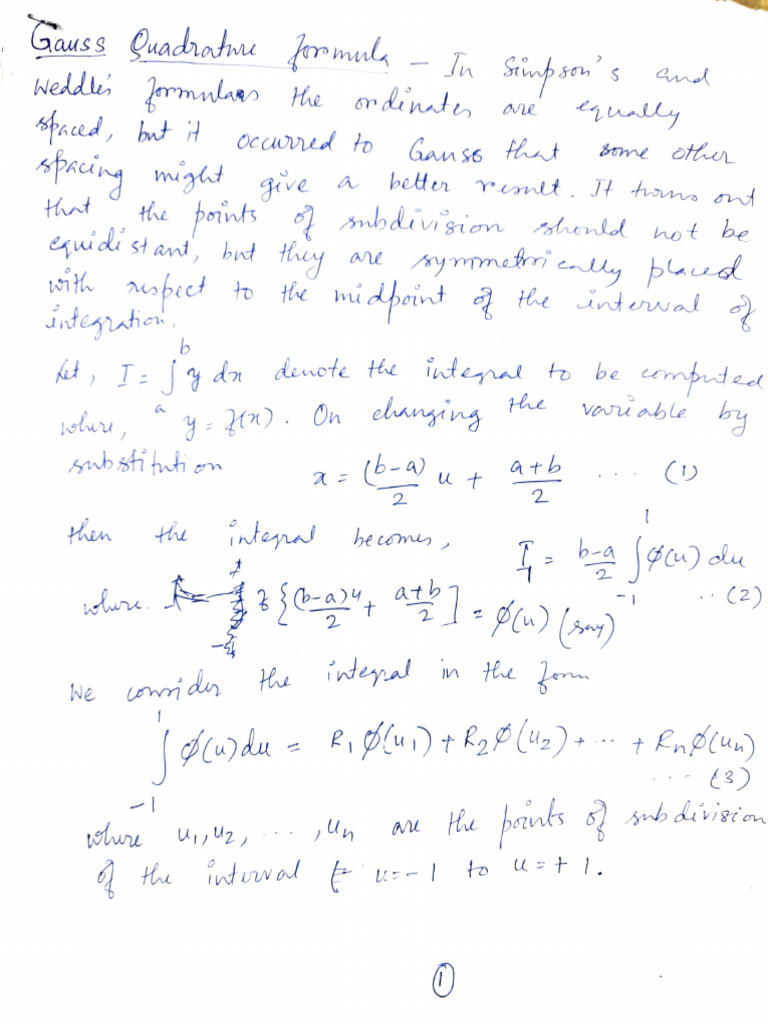 Gauss Quadrature formula – In Simpson's and
Weddle's formulas the ordinates are equally
spaced, but it occurred to Gauss that some other
spacing might give a better result. It turns out
that the points of subdivision should not be
equidistant, but they are symmetrically placed
with respect to the midpoint of the interval of
integration.
Let, I = ∫_a^b y dx denote the integral to be computed
where, y = f(x). On changing the variable by
substitution x = (b-a)/2 u + (a+b)/2 ... (1)
then the integral becomes, I = (b-a)/2 ∫_{-1}^{1} φ(u) du
where f{(b-a)u/2 + (a+b)/2] = φ(u) (say) .. (2)
We consider the integral in the form
∫_{-1}^{1} φ(u) du = R₁φ(u₁) + R₂φ(u₂) + ... + Rₙφ(uₙ)
... (3)
where u₁, u₂, ..., uₙ are the points of subdivision
of the interval u = -1 to u = + 1.
1